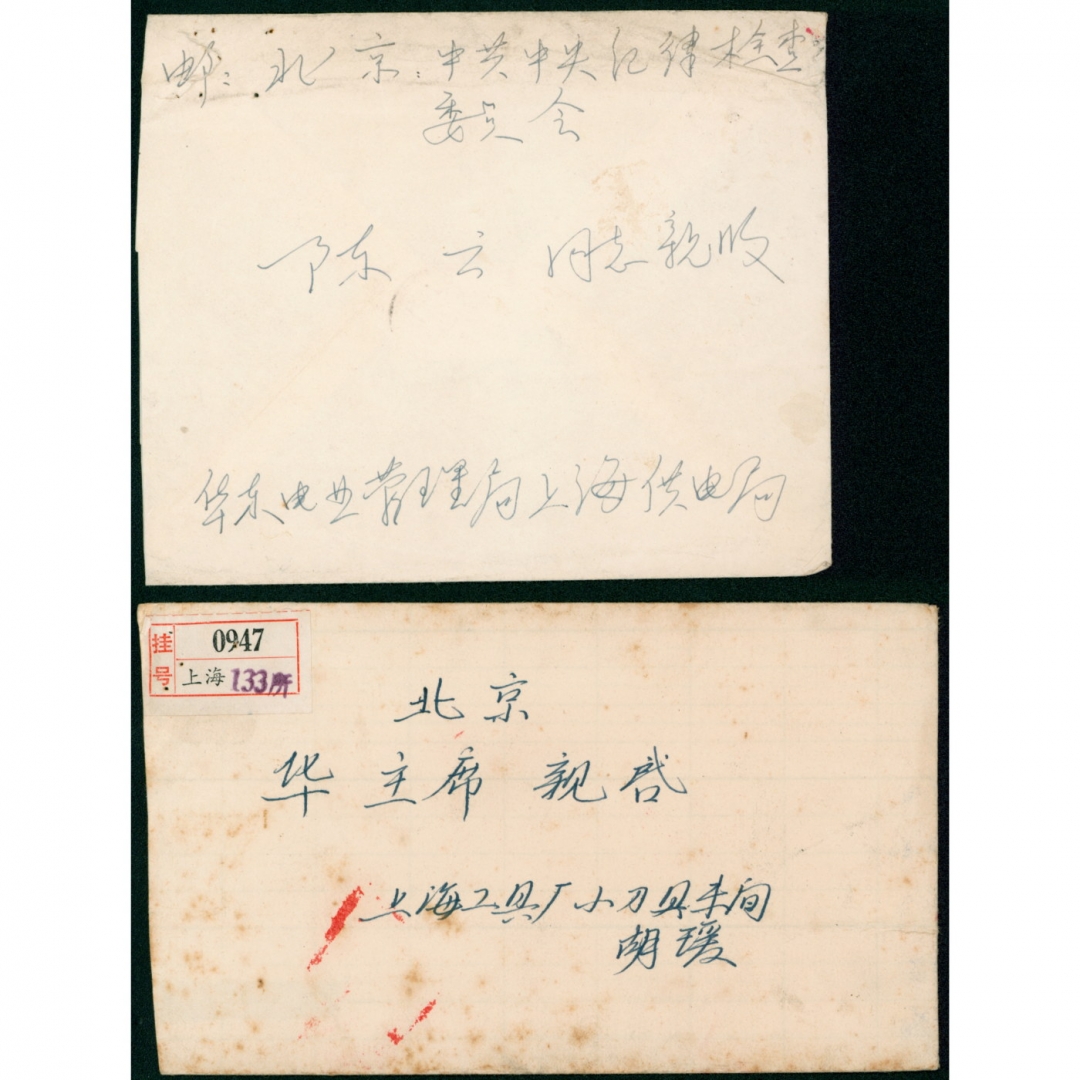 邮：北京：中共中央纪律检查
委员会
陈云 同志亲收
华东电业管理局上海供电局
挂号
0947
上海 133所
北京
华主席亲启
上海工具厂小刀具车间
胡瑗